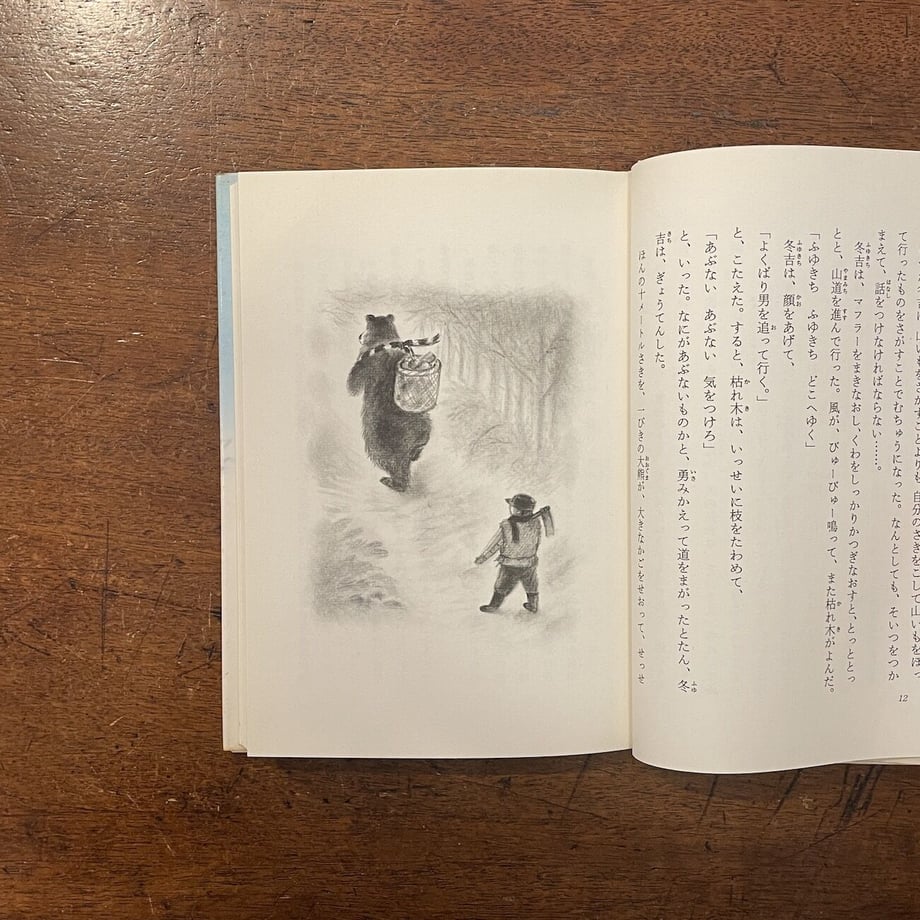 ことよりも、自分のさきをこして山いもをほっ
て行ったものをさがすことでむちゅうになった。なんとしても、そいつをつか
まえて、話をつけなければならない……。
冬吉は、マフラーをまきなおし、くわをしっかりかつぎなおすと、とっとっ
とと、山道を進んで行った。風が、びゅーびゅー鳴って、また枯れ木がよんだ。
「ふゆきち　ふゆきち　どこへゆく」
冬吉は、顔をあげて、
「よくばり男を追って行く。」
と、こたえた。すると、枯れ木は、いっせいに枝をたわめて、
「あぶない　あぶない　気をつけろ」
と、いった。なにがあぶないものかと、勇みかえって道をまがったとたん、冬
吉は、ぎょうてんした。
ほんの十メートルさきを、一ぴきの大熊が、大きなかごをせおって、せっせ
12